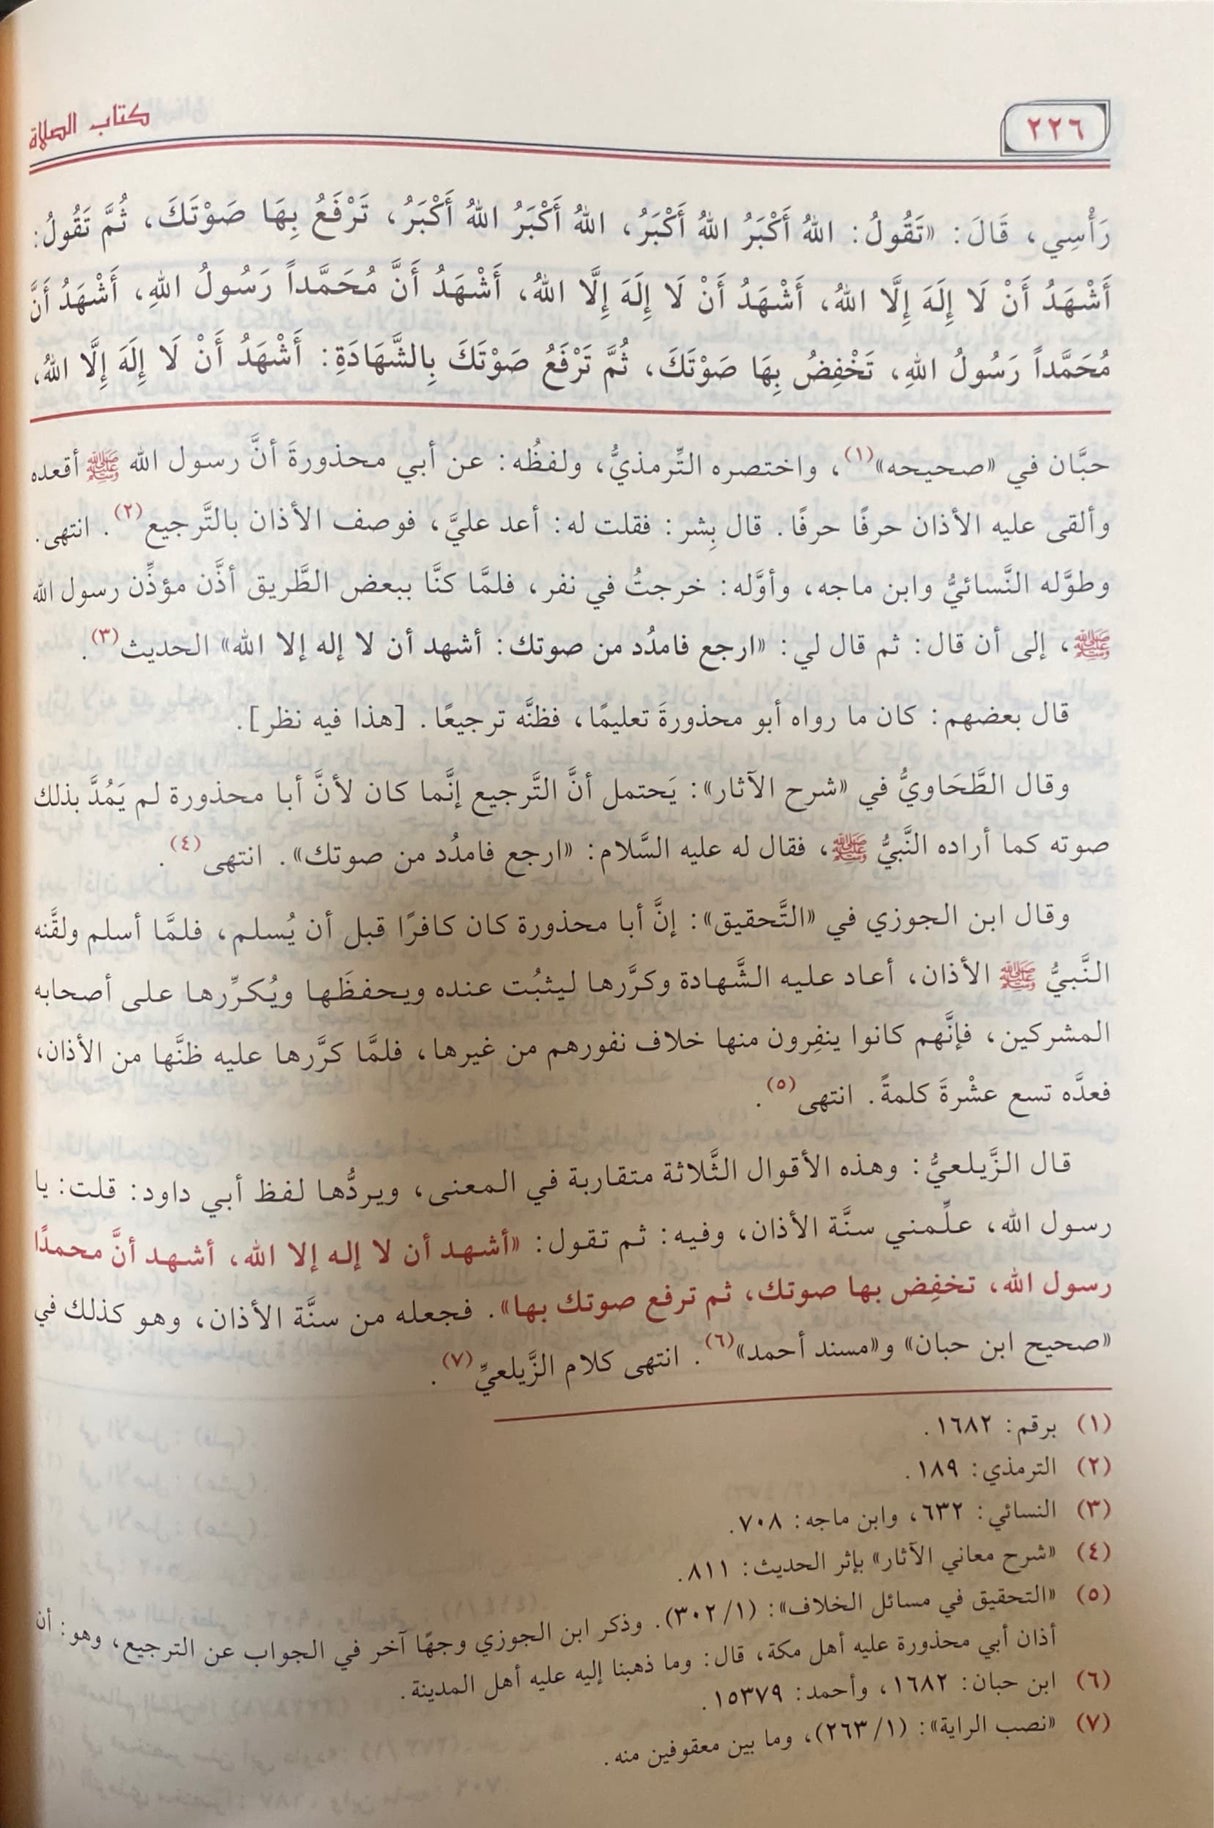 ٢٢٦
كتاب الصلاة
رَأْسِي، قَالَ: «تَقُولُ: اللهُ أَكْبَرُ اللهُ أَكْبَرُ، اللهُ أَكْبَرُ اللهُ أَكْبَرُ، تَرْفَعُ بِهَا صَوْتَكَ، ثُمَّ تَقُولُ:
أَشْهَدُ أَنْ لَا إِلَهَ إِلَّا اللهُ، أَشْهَدُ أَنْ لَا إِلَهَ إِلَّا اللهُ، أَشْهَدُ أَنَّ مُحَمَّداً رَسُولُ اللهِ، أَشْهَدُ أَنَّ
مُحَمَّداً رَسُولُ اللهِ، تَخْفِضُ بِهَا صَوْتَكَ، ثُمَّ تَرْفَعُ صَوْتَكَ بِالشَّهَادَةِ: أَشْهَدُ أَنْ لَا إِلَهَ إِلَّا اللهُ،
حبَّان في «صحيحه»(١)، واختصره التِّرمذيُّ، ولفظُه: عن أبي محذورةَ أنَّ رسول الله ﷺ أقعده
وألقى عليه الأذان حرفًا حرفًا. قال بِشر: فقلت له: أعد عليَّ، فوصف الأذان بالتَّرجيع(٢). انتهى.
وطوَّله النَّسائيُّ وابن ماجه، وأوَّله: خرجتُ في نفر، فلمَّا كنَّا ببعض الطَّريق أذَّن مؤذِّن رسول الله
ﷺ، إلى أن قال: ثم قال لي: «ارجع فامدُد من صوتك: أشهد أن لا إله إلا الله» الحديث(٣).
قال بعضهم: كان ما رواه أبو محذورةَ تعليمًا، فظنَّه ترجيعًا. [هذا فيه نظر].
وقال الطَّحَاويُّ في «شرح الآثار»: يَحتمل أنَّ التَّرجيع إنَّما كان لأنَّ أبا محذورة لم يَمُدَّ بذلك
صوته كما أراده النَّبيُّ ﷺ، فقال له عليه السَّلام: «ارجع فامدُد من صوتك». انتهى(٤).
وقال ابن الجوزي في «التَّحقيق»: إنَّ أبا محذورة كان كافرًا قبل أن يُسلم، فلمَّا أسلم ولقَّنه
النَّبيُّ ﷺ الأذان، أعاد عليه الشَّهادة وكرَّرها ليثبُت عنده ويحفظَها ويُكرِّرها على أصحابه
المشركين، فإنَّهم كانوا ينفِرون منها خلاف نفورهم من غيرها، فلمَّا كرَّرها عليه ظنَّها من الأذان،
فعدَّه تسع عشْرةَ كلمةً. انتهى(٥).
قال الزَّيلعيُّ: وهذه الأقوال الثَّلاثة متقاربة في المعنى، ويردُّها لفظ أبي داود: قلت: يا
رسول الله، علِّمني سنَّة الأذان، وفيه: ثم تقول: «أشهد أن لا إله إلا الله، أشهد أنَّ محمدًا
رسول الله، تخفِض بها صوتك، ثم ترفع صوتك بها». فجعله من سنَّة الأذان، وهو كذلك في
«صحيح ابن حبان» و«مسند أحمد»(٦). انتهى كلام الزَّيلعيِّ(٧).
(١) برقم: ١٦٨٢.
(٢) الترمذي: ١٨٩.
(٣) النسائي: ٦٣٢، وابن ماجه: ٧٠٨.
(٤) «شرح معاني الآثار» بإثر الحديث: ٨١١.
(٥) «التحقيق في مسائل الخلاف»: (٣٠٢/١). وذكر ابن الجوزي وجهًا آخر في الجواب عن الترجيع، وهو: أن
أذان أبي محذورة عليه أهل مكة، قال: وما ذهبنا إليه عليه أهل المدينة.
(٦) ابن حبان: ١٦٨٢، وأحمد: ١٥٣٧٩.
(٧) «نصب الراية»: (٢٦٣/١)، وما بين معقوفين منه.